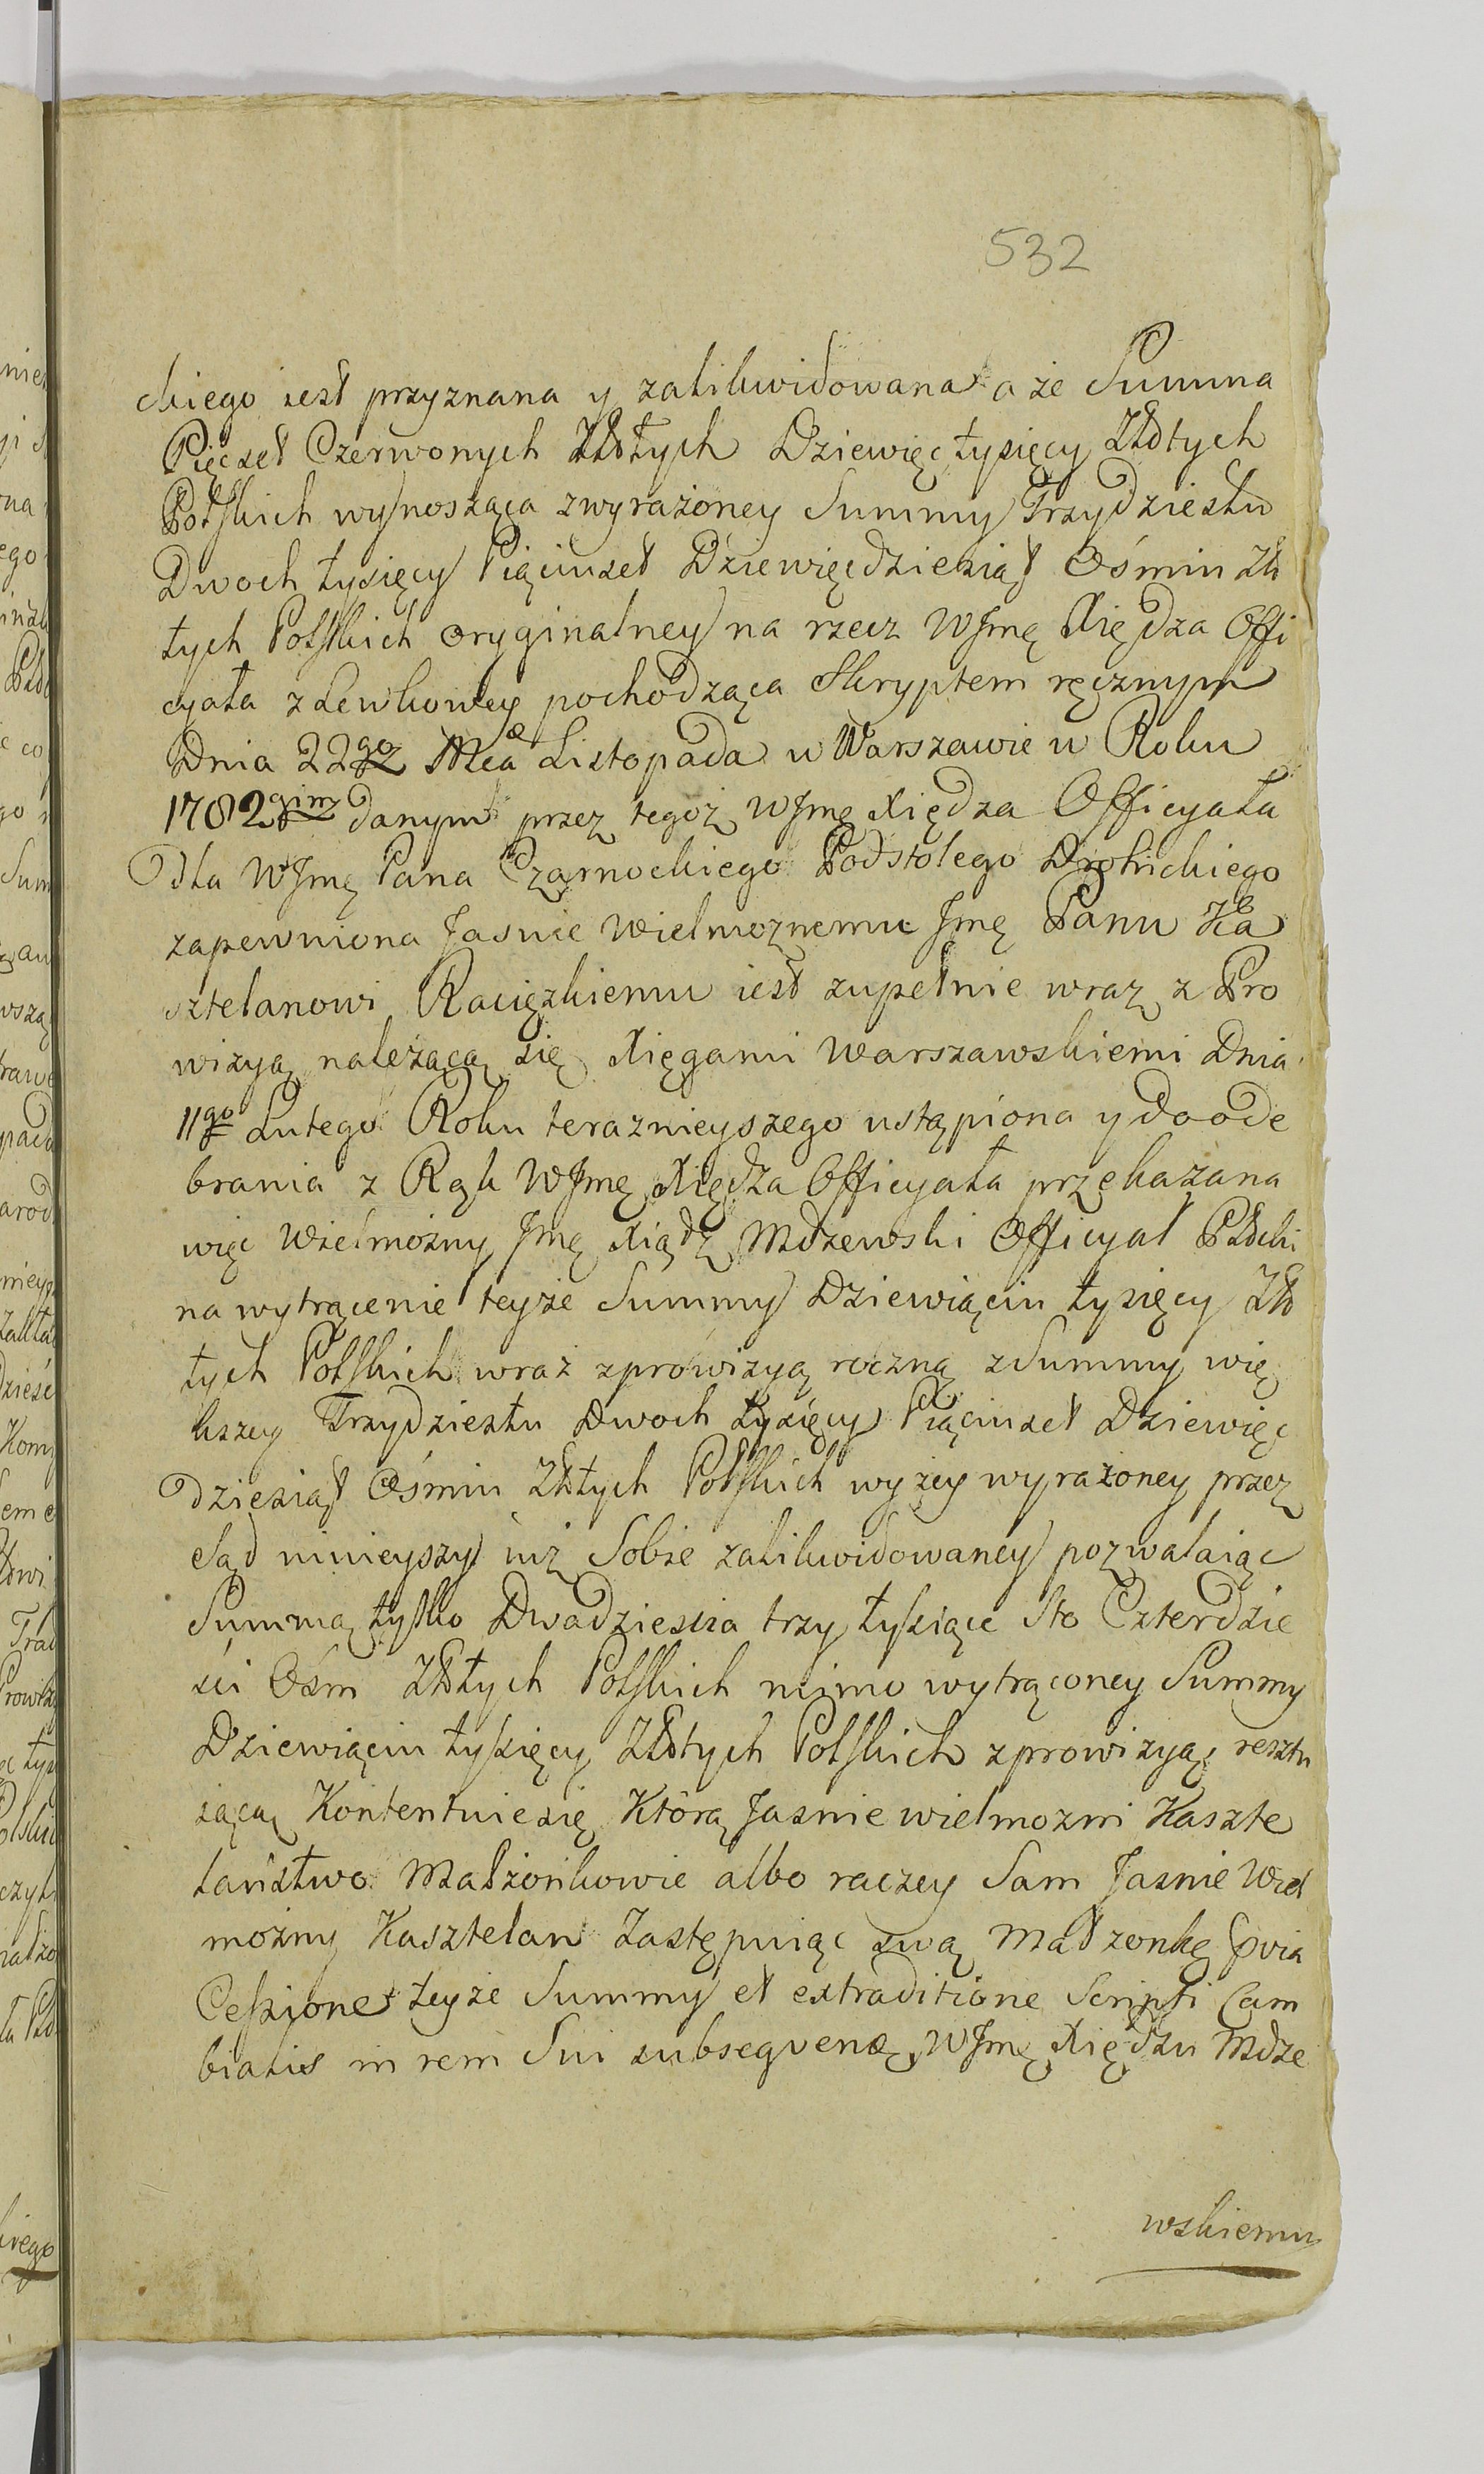 532
ckiego iest przyznana y zalikwidowana a że Summa
Pięćset Czerwonych Złłtych Dziewięć tysięcy Złotych
Polskich wynosząca zwyrażoney Summy Trzydziestu
Dwoch tysięcy Pięciuset Dziewięćdziesiąt Ośmiu Zło
tych Polskich oryginalney na rzecz WJmę Xiędza Offi
cyała z Lewkowey pochodząca Skryptem ręcznym
Dnia 22go Mca Listopada w Warszawie w Roku
1782gim danym przez tegoż WJmę Xiędza Officyała
Dla WJmę Pana Czarnockiego Podstolego Drohickiego
zapewniona Jasnie Wielmożnemu Jmę Panu Ka
sztelanowi Raciązkiemu iest zupełnie wraz z Pro
wizyą należącą się Xięgami Warszawskiemi Dnia
11go Lutego Roku teraznieyszego ustąpiona y do ode
brania z Rąk WJmę Xiędza Officyała przekazana
więc Wielmożny Jmę Xiądz Mdzewski Officyał Płocki
na wytrącenie teyże Summy Dziewiąciu tysięcy Zło
tych Polskich wraz z prowizyą roczną z Summy wię
kszey Trzydziestu Dwoch tysięcy Piąciuset Dziewięć
dziesiąt Ośmiu Złłtych Polskich wyżey wyrażoney przez
Sąd ninieyszy iuż Sobie zalikwidowaney pozwalaiąc
Summą tylko Dwadziescia trzy tysiące Sto Czterdzie
ści Ośm Złłtych Polskich mimo wytrąconey Summy
Dziewiąciu tysięcy Złłtych Polskich z prowizyą resztu
iącą Kontentuie się Którą Jasnie wielmożni Kaszte
laństwo Małżonkowie albo raczey Sam Jasnie Wiel
możny Kasztelan Zastępuiąc swą Małżonkę Prvia
Cessione teyże Summy et extraditione Scripti Cam
bialis in rem Sui subsequen WJmę Xiędzu Mdze
wskiemu